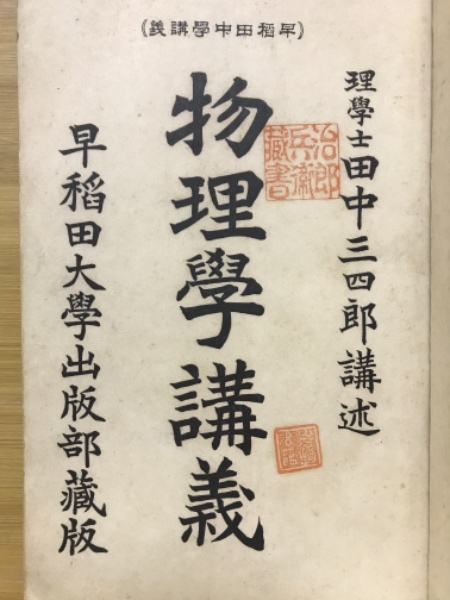 (早稻田中學講義)
理學士田中三四郎講述
物理學講義
早稻田大學出版部藏版
治郎
兵衛
藏書